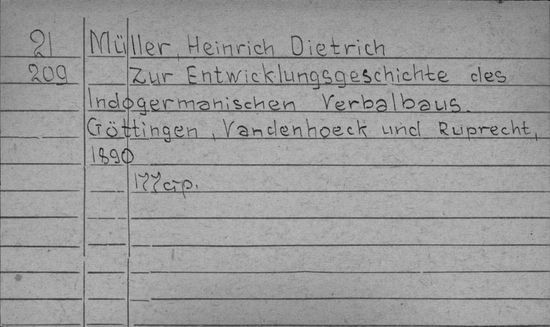 21 Müller, Heinrich Dietrich
209 Zur Entwicklungsgeschichte des
Indogermanischen Verbalbaus.
Göttingen, Vandenhoeck und Ruprecht,
1890
177 стр.